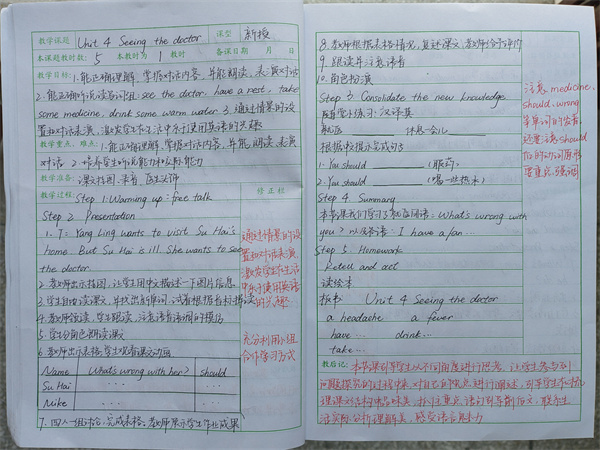 教学课题 Unit 4 Seeing the doctor 课型 新授
本课题教时数: 5 本教时为 1 教时 备课日期 月 日
教学目标: 1.能正确理解、掌握对话内容,并能朗读、表演对话
2.能正确听说读写词组 see the doctor, have a rest, take
some medicine, drink some warm water 3.通过情景的设
置和对话表演,激发学生在生活中乐于使用英语的兴趣
教学重点、难点: 1.能正确理解、掌握对话内容,并能朗读、表演
对话 2.培养学生听说能力和交际能力
教学准备: 课文挂图、录音、医生头饰
教学过程: Step 1: Warming up: free talk 修正栏
Step 2 Presentation
1. T: Yang Ling wants to visit Su Hai's
home. But Su Hai is ill. She wants to see
the doctor.
2 教师出示挂图,让学生用中文描述一下图片信息
3 学生自读课文,并找出新单词,试着根据音标拼读
4 教师领读,学生跟读,注意语音语调的模仿
5 学生分角色朗读课文
6 教师出示表格,学生观看课文动画
Name What's wrong with her? should
Su Hai ... ...
Mike ... ...
7. 四人一组讨论,完成表格,教师展示学生作业成果
通过情景的设
置和对话表演,
激发学生在生活
中乐于使用英语
的兴趣
充分利用小组
合作学习方式
8. 教师根据表格情况,复述课文,教师给予评价
9 跟读并注意语音
10 角色扮演
Step 3 Consolidate the new knowledge
汉译英
休息一会儿
根据中文提示完成句子
1. You should (服药)
2. You should (喝一些热水)
Step 4. Summary
本节课我们学习了 What's wrong with
you? 以及答语: I have a / an...
Step 5. Homework
Retell and act
读绘本
板书 Unit 4 Seeing the doctor
a headache a fever
have... drink...
take...
注意 medicine,
should, wrong
等单词的发音,
还要注意 should
后的动词原形
要重点强调!
教后记: 本节课引导学生从不同角度进行思考,让学生参与到
问题探究的过程中来,对自己的观点进行阐述,